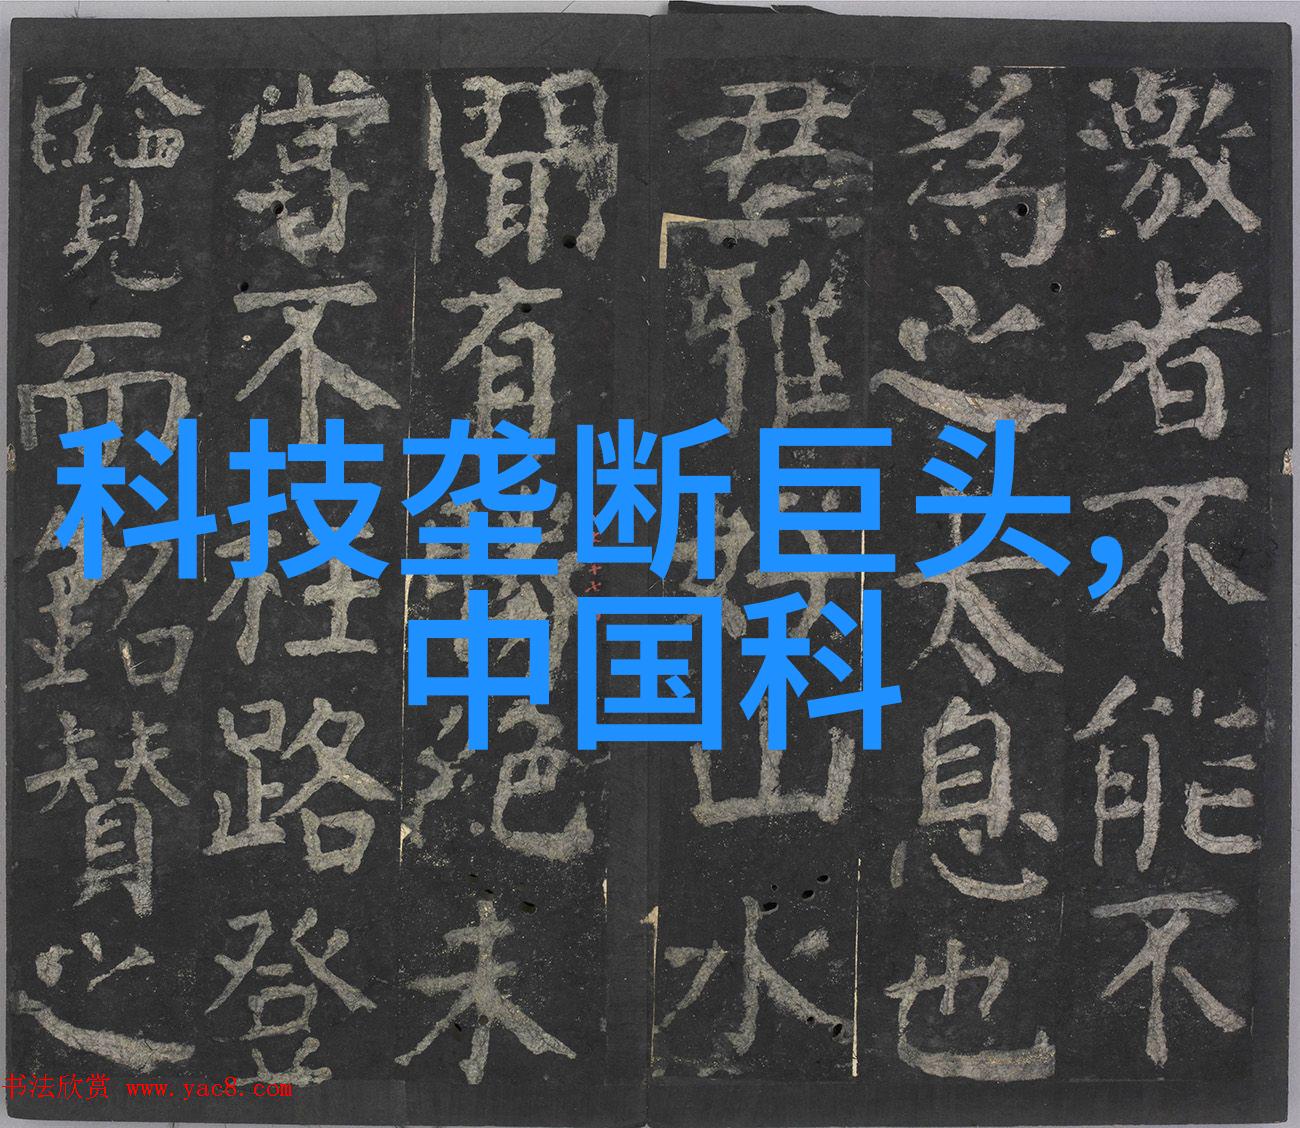 科技垄断巨头,
中国科
激者不能不
為之太息也
君雅好山水
聞有絕未
嘗不枉路登
覽而銘贊之
书法欣赏 www.yac8.com